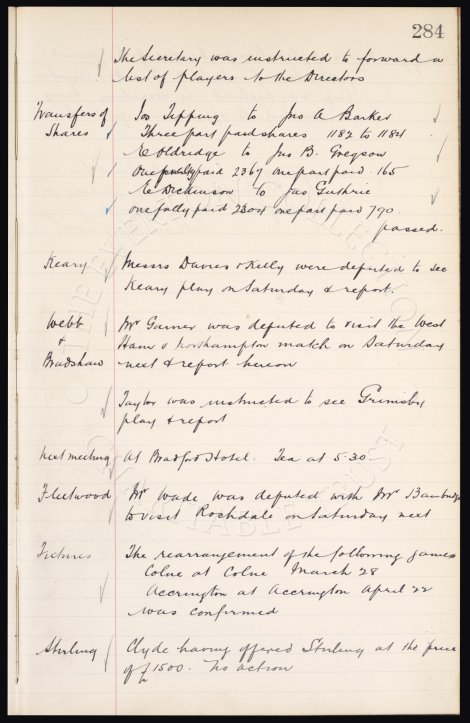 284
The Secretary was instructed to forward a
list of players to the Directors
Transfers of Shares
Jos Tipping to Jno A Barker
Three part paid shares 1182 to 1184
E Oldridge to Jno B. Gregson
One fully paid 2367 one part paid 165
E Dickinson to Jas Guthrie
one fully paid 2304 one part paid 790
passed.
Keary
Messrs Davies & Kelly were deputed to see
Keary play on Saturday & report.
Webb & Bradshaw
Mr Gamer was deputed to visit the West
Ham v Northampton match on Saturday
next & report hereon
Taylor was instructed to see Grimsby
play & report
Next meeting
At Bradford Hotel. Tea at 5.30.
Fleetwood
Mr Wade was deputed with Mr Bainbridge
to visit Rochdale on Saturday next
Fixtures
The rearrangement of the following games
Colne at Colne March 28
Accrington at Accrington April 22
was confirmed
Stirling
Clyde having offered Stirling at the price
of £1500. No action